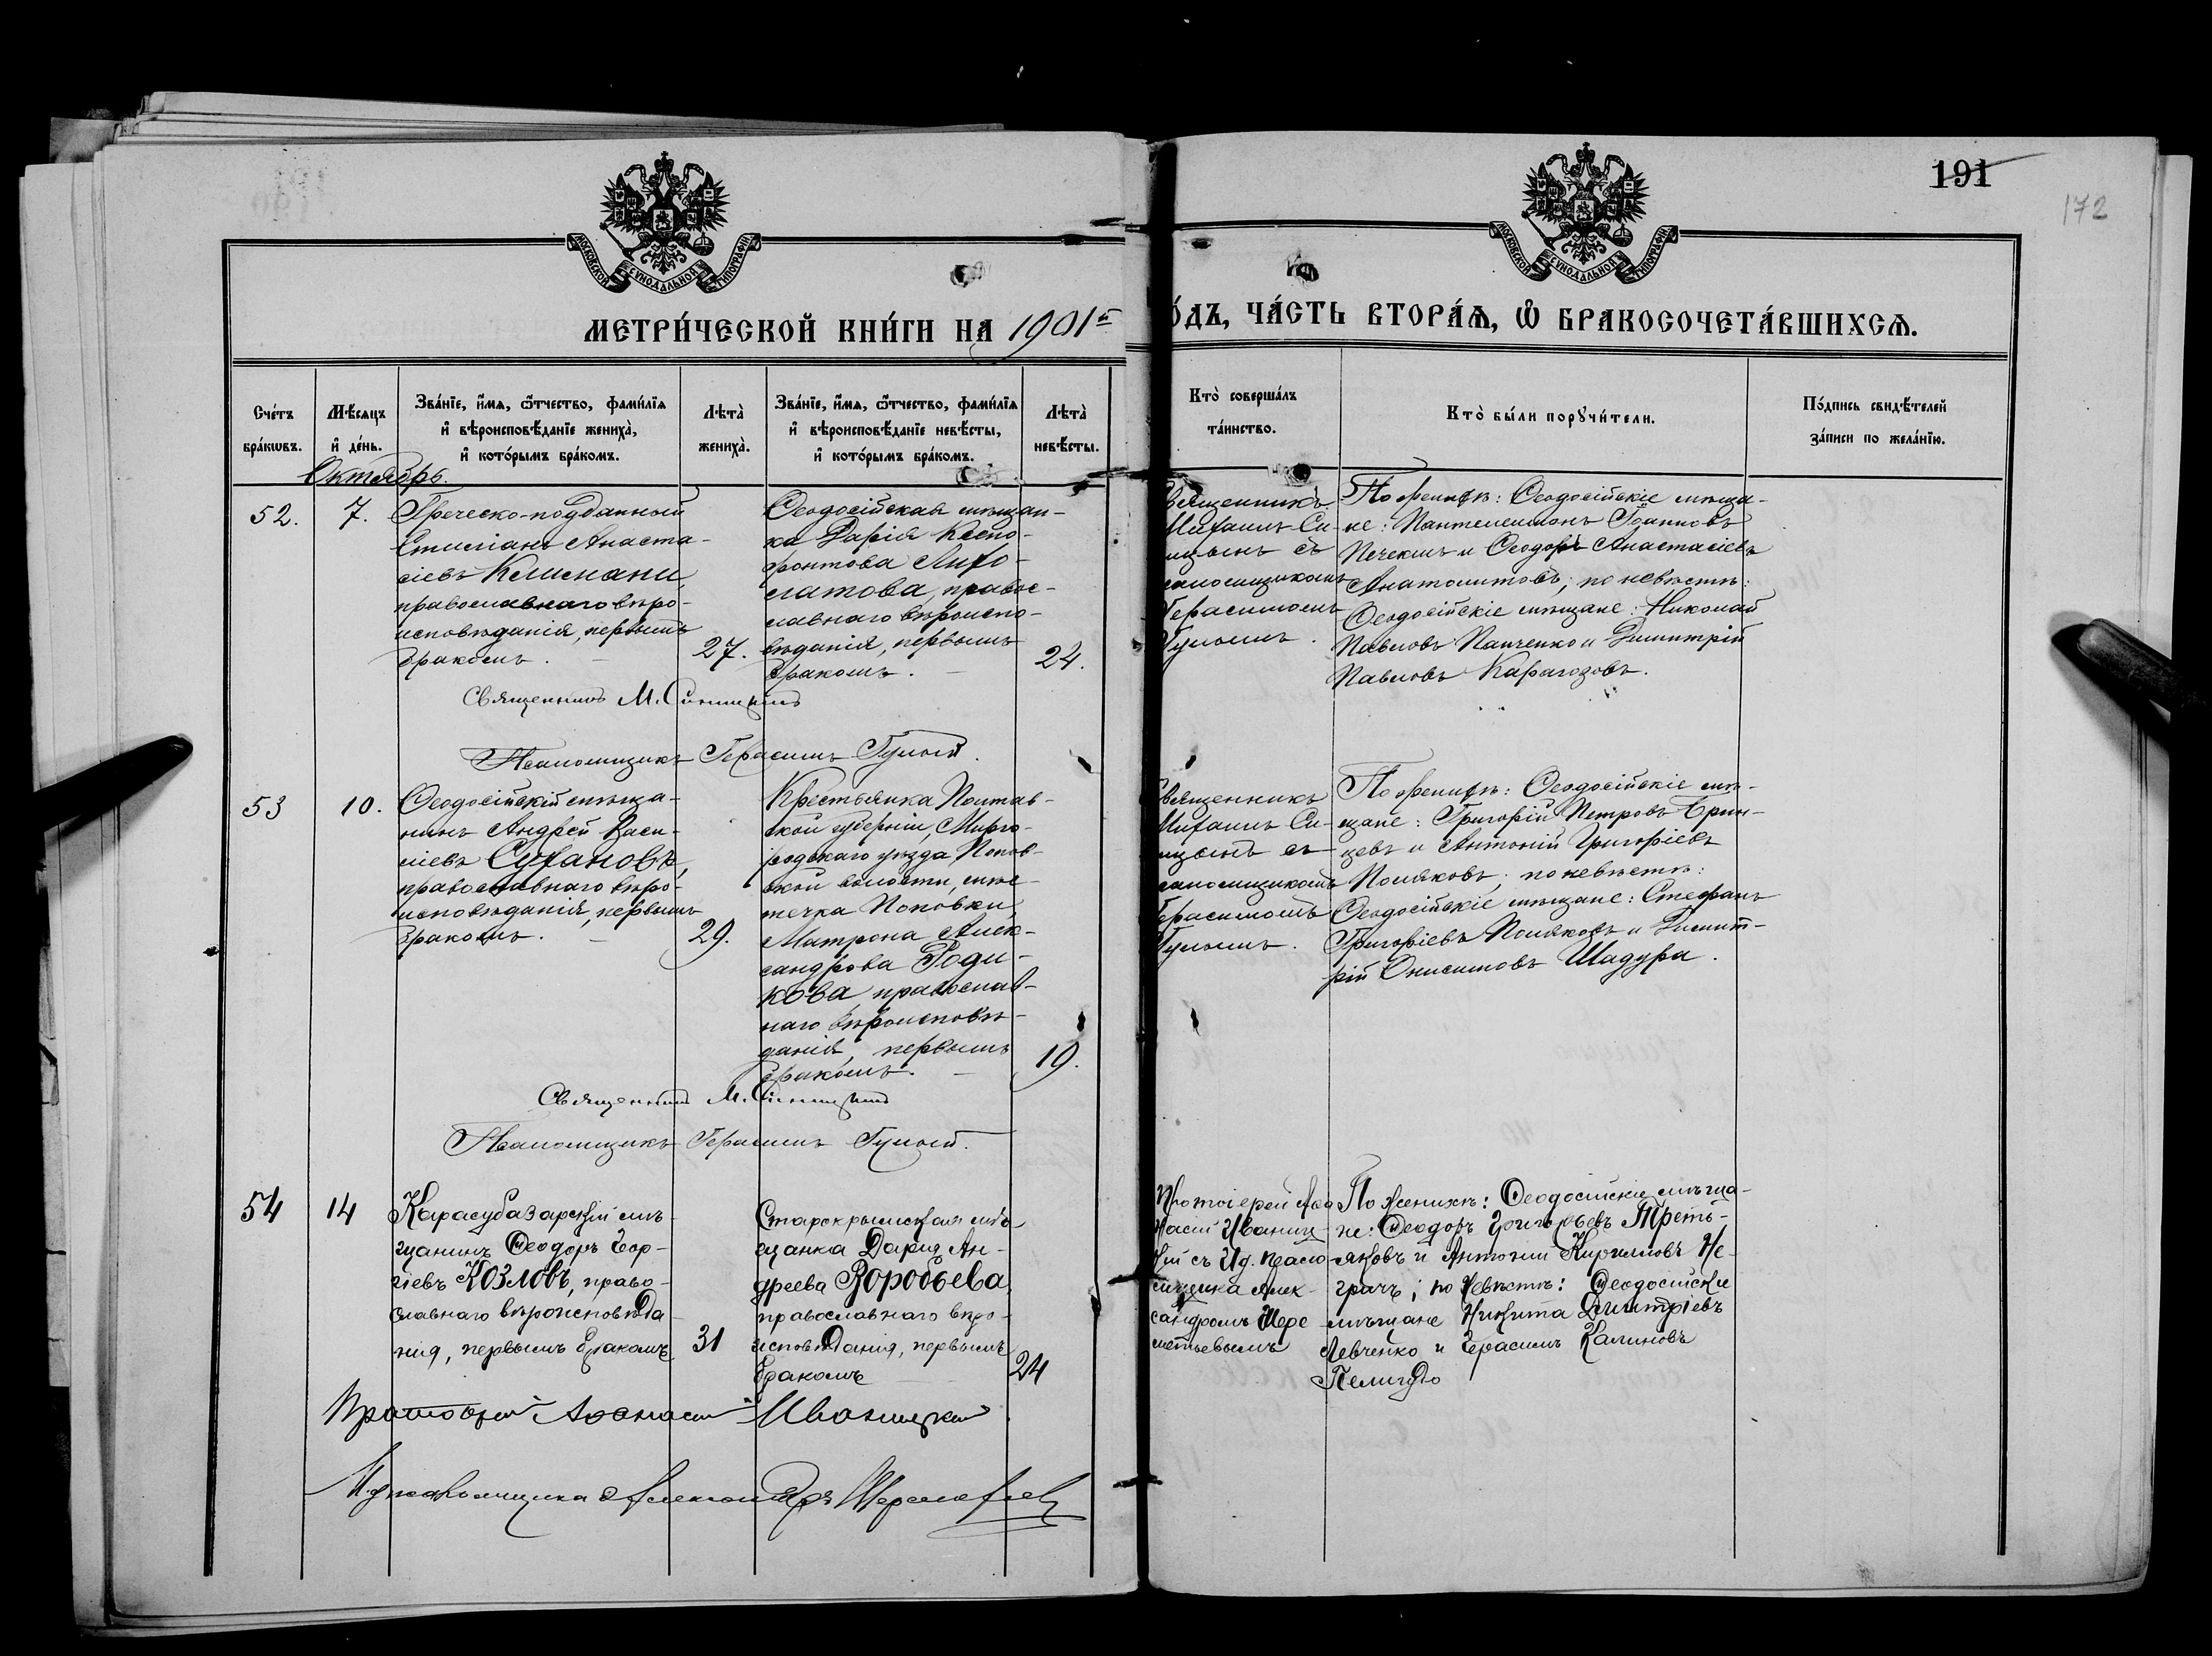 191
172
МОСКОВСКОЙ СѴНОДАЛЬНОЙ ТИПОГРАФІИ
МОСКОВСКОЙ СѴНОДАЛЬНОЙ ТИПОГРАФІИ
МЕТРИ́ЧЕСКОЙ КНИ́ГИ НА 1901й
О́ДЪ, ЧА́СТЬ ВТОРА́Ѧ, Ѡ҆ БРАКОСОЧЕТА́ВШИХСѦ.
Сче́тъ
бра́кѡвъ.
Мѣ́сяцъ
и҆ де́нь.
Зва́нїе, и҆́мѧ, ѻ҆́тчество, фами́лїѧ
и҆ вѣроисповѣ́данїе жениха̀,
и҆ кото́рымъ бра́комъ.
Лѣта̀
жениха̀.
Зва́нїе, и҆́мѧ, ѻ҆́тчество, фами́лїѧ
и҆ вѣроисповѣ́данїе невѣ́сты,
и҆ кото́рымъ бра́комъ.
Лѣта̀
невѣ́сты.
Кто̀ соверша́лъ
та́инство.
Кто̀ бы́ли порꙋчи́тели.
По́дпись свидѣ́телей
за́писи по жела́нїю.
Октябрь.
52.
7.
Греческо-подданный
Стиліанъ Анаста-
сіевъ
православнаго вѣро-
исповѣданія, первымъ
бракомъ.
27.
Ѳеодосійская мѣщан-
ка Дарія Ксено-
фонтова Лихо-
латова, правос-
лавнаго вѣроиспо-
вѣданія, первымъ
бракомъ.
24.
Священникъ
Михаилъ Си-
ицынъ съ
саломщикомъ
Герасимомъ
Гулымъ.
По женихѣ: Ѳеодосійскіе мѣща-
не: Пантелеимонъ Іоанновъ
и Ѳеодоръ Анастасіевъ
Анатолитовъ; по невѣстѣ:
Ѳеодосійскіе мѣщане: Николай
Павловъ Панченко и Димитрій
Павловъ Карагозовъ.
Священникъ М. Синицынъ
Псаломщикъ Герасимъ Гулый.
53
10.
Ѳеодосійскій мѣща-
нинъ Андрей Васи-
ліевъ Сухановъ,
православнаго вѣро-
исповѣданія, первымъ
бракомъ.
29.
Крестьянка Полтав-
ской губерніи, Мирго-
родскаго уѣзда Попов-
ской волости, мѣс-
течка Поповки,
Матрона Алек-
сандрова Роди-
кова, православ-
наго вѣроисповѣ-
данія, первымъ
бракомъ.
19.
Священникъ
Михаилъ Си-
ицынъ съ
саломщикомъ
Герасимомъ
Гулымъ.
По женихѣ: Ѳеодосійскіе мѣ-
щане: Григорій Петровъ Брин-
цевъ и Антоній Григоріевъ
Поляковъ; по невѣстѣ:
Ѳеодосійскіе мѣщане: Стефанъ
Григоріевъ Поляковъ и Димит-
рій Онисимовъ Шадура.
Священникъ М. Синицынъ
Псаломщикъ Герасимъ Гулый.
54
14
Карасубазарскій мѣ-
щанинъ Ѳеодоръ Геор-
гіевъ Козловъ, право-
славнаго вѣроисповѣда-
нія, первымъ бракомъ
31
Старокрымская мѣ-
щанка Дарія Ан-
дреева Воробьева,
православнаго вѣро-
исповѣданія, первымъ
бракомъ
24
Протоіерей Аѳа
насій Иваниц-
кій съ И.д. псало-
мщика Алек-
сандромъ Шере-
метьевымъ
По женихѣ: Ѳеодосійскіе мѣща-
не: Ѳеодоръ Григорьевъ Треть-
яковъ и Антоній Кирилловъ Не-
грачъ; по невѣстѣ: Ѳеодосійскіе
мѣщане Никита Димитріевъ
Левченко и Герасимъ Калиновъ
Протоіерей Аѳанасій Иваницкій
И.д. псаломщика Александръ Шереметьевъ